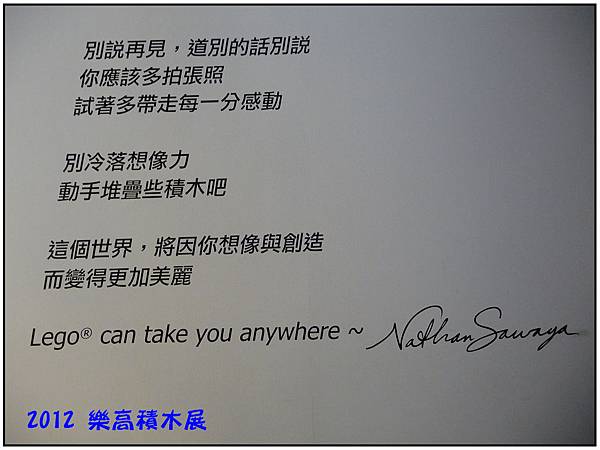 別説再見，道別的話別説
你應該多拍張照
試著多帶走每一分感動
別冷落想像力
動手堆疊些積木吧
這個世界，將因你想像與創造
而變得更加美麗
Lego® can take you anywhere ~ Nathan Sawaya
2012 樂高積木展